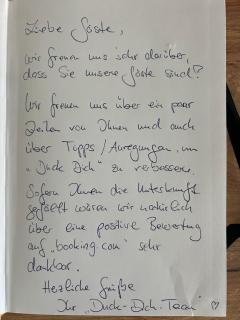 Liebe Gäste,
wir freuen uns sehr darüber,
dass Sie unsere Gäste sind!
Wir freuen uns über ein paar
Zeilen von Ihnen und auch
über Tipps / Anregungen, um
„Duck Dich" zu verbessern.
Sofern Ihnen die Unterkunft
gefällt wären wir natürlich
über eine positive Bewertung
auf „booking.com" sehr
dankbar.
Herzliche Grüße
Ihr „Duck-Dich-Team" ♡